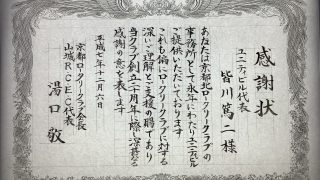 感謝状
ユニティビル代表
皆川篤二様
あなたは京都北ロータリークラブの
事務所として永年にわたりユニティビル
ご提供いただいております
これも偏にロータリークラブに対する
深いご理解とご支援の賜であり
当クラブ創立二十周年に際し深甚なる
感謝の意を表します
平成七年十二月六日
京都北ロータリークラブ会長
代表
湯口敬